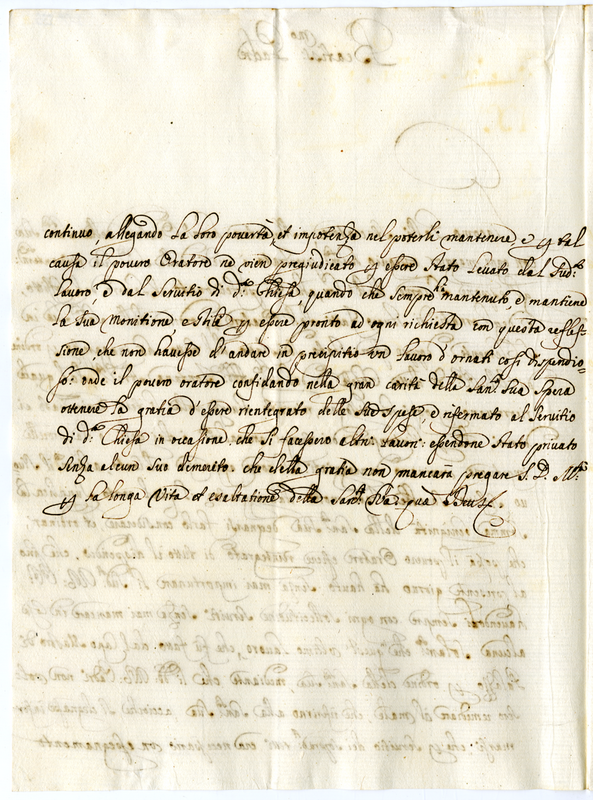 continuo, allegando la loro povertà, et impotenza nel poterli mantenere, e p tal
causa il povero Oratore ne vien pregiudicato p essere stato levato dal sud.º
lavoro, e dal servitio di d.ª Chiesa, quando che sempre hà mantenuto, e mantiene
la sua monitione, e stila p essere pronto ad ogni richiesta con questa refles-
sione, che non havesse d'andare in precipitio un lavoro d'ornati così dispendio-
so: onde il povero oratore confidando nella gran carità della San.tà Sua spera
ottenere la gratia d'essere rientegrato delle sud.e spese, e rifermato al servitio
di d.ª Chiesa in occasione che si facessero altri lavori: essendone stato privato
senza alcun suo demerito. che della gratia non mancarà pregare S. D. M.tà
p la longa vita et esaltatione della San.tà Sua. qua Deus &c.